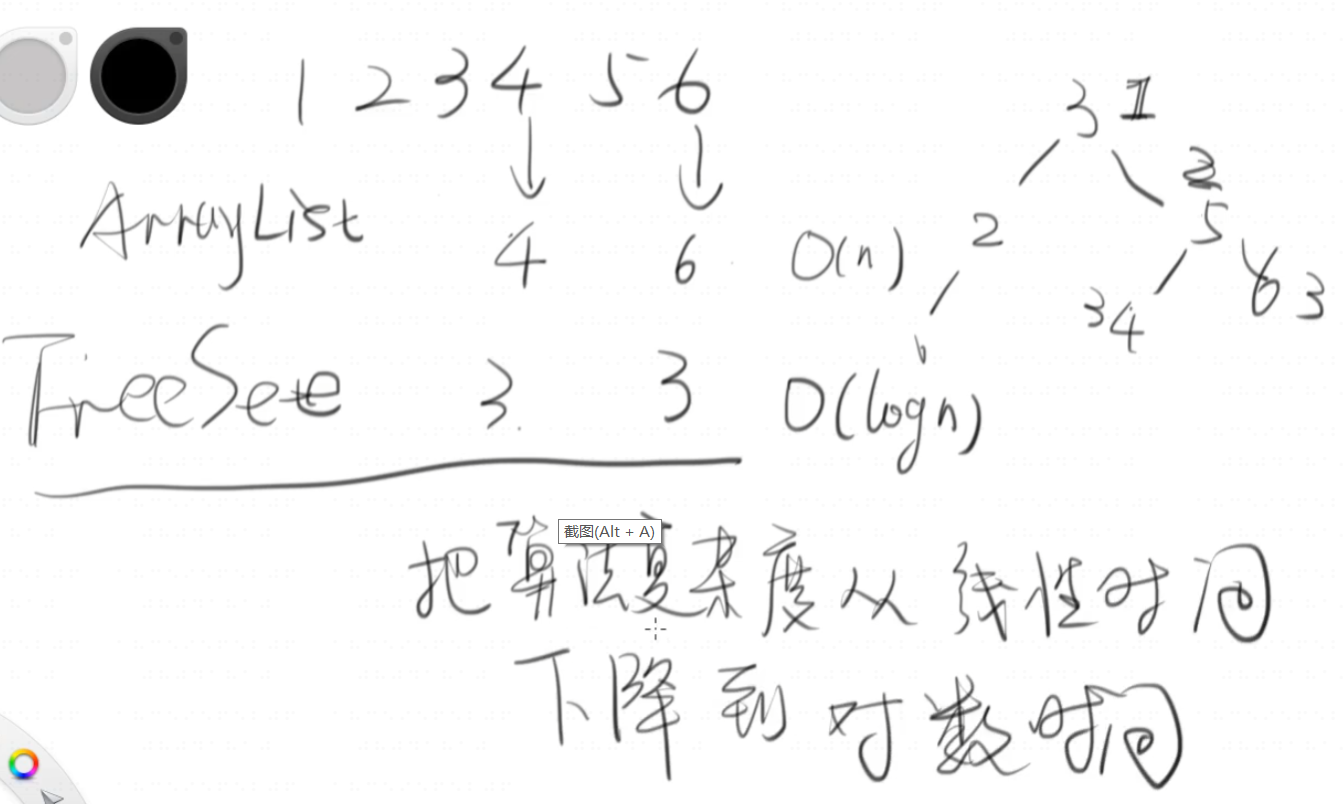 1 2 3 4 5 6
ArrayList 4 6 O(n)
TreeSet 3 3 O(logn)
3 1
2
2 5
1 3 4 6 3
截图(Alt + A)
把算法复杂度从线性时间
下降到对数时间